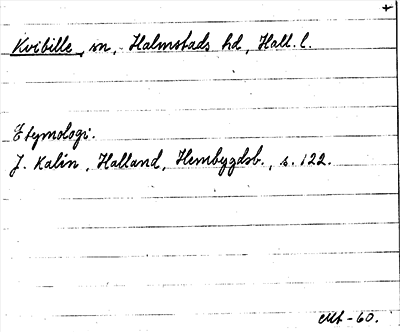 +
Kvibille, sn, Halmstads hd, Hall. l.
Etymologi.
J. Kalin, Halland, Hembygdsb., s. 122.
-60.